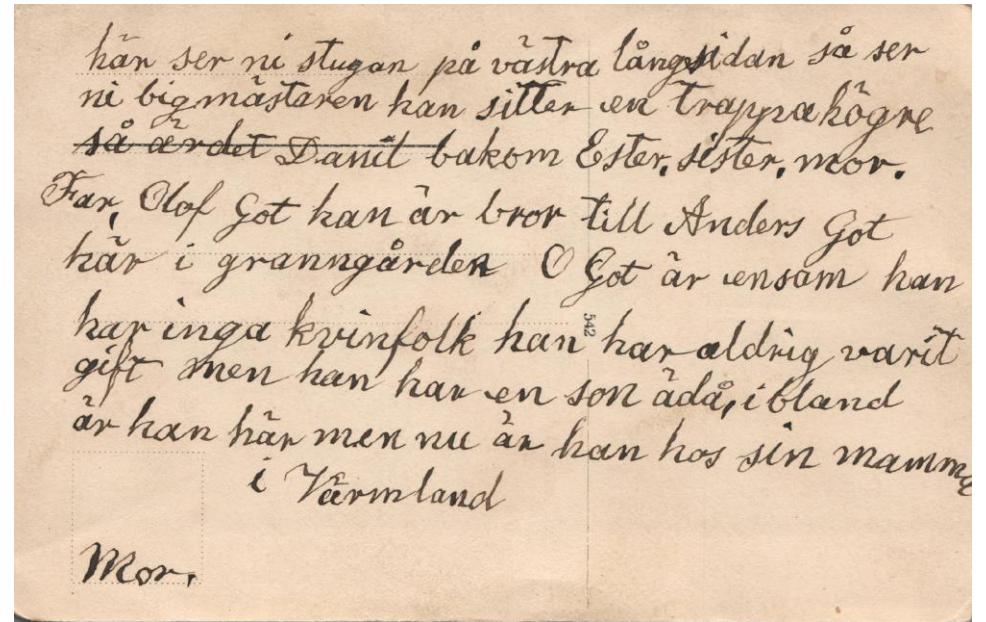 här ser ni stugan på västra långsidan så ser
ni bigmästaren han sitter en trappa högre
så är det Danil bakom Ester, sister, mor.
Far, Olof Got han är bror till Anders Got
här i granngården O Got är ensam han
har inga kvinfolk han har aldrig varit
gift men han har en son ädå, ibland
är han här men nu är han hos sin mamma
i Värmland
Mor.
542